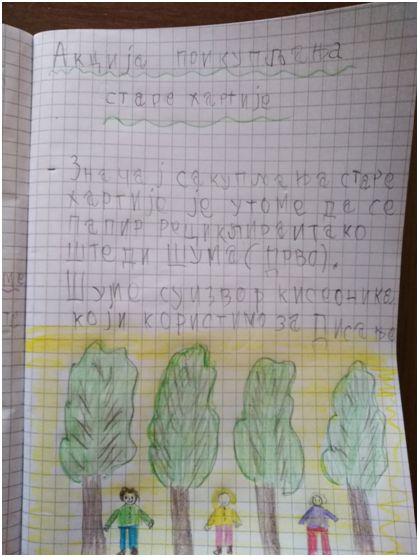 Акција прикупљања
старе хартије
- Значај сакупљања старе
хартије је утоме да се
папир рециклираитако
штеди шума (дрво).
Шуме суизвор кисеоника
који користимо за дисање